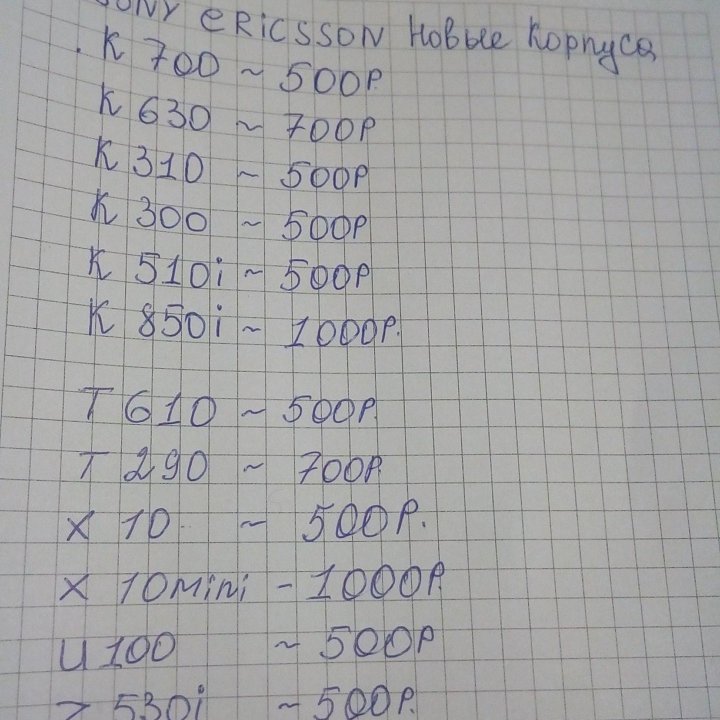 SONY ERICSSON Новые Корпуса
К 700 ~ 500Р.
К 630 ~ 700Р
К 310 ~ 500Р
К 300 ~ 500Р
К 510i ~ 500Р
К 850i ~ 1000Р.
Т 610 ~ 500Р.
Т 290 ~ 700Р.
X 10 ~ 500Р.
X 10 mini - 1000Р.
U 100 ~ 500Р
530i ~ 500Р.